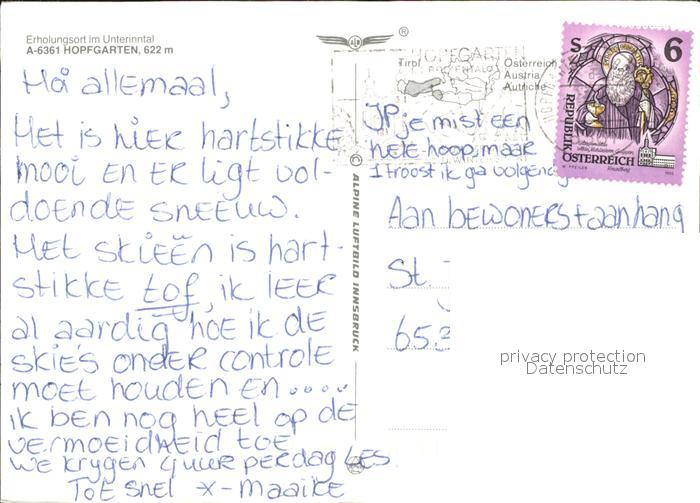 Erholungsort im Unterinntal
A-6361 HOPFGARTEN, 622 m
Hoi allemaal,
Het is hier hartstikke
mooi en er ligt vol-
doende sneeuw.
Het skieën is hart-
stikke tof, ik leer
al aardig hoe ik de
skies onder controle
moet houden en ....
ik ben nog heel op de
vermoeidheid toe
we krygen 4 uur per dag les.
Tot snel x-maaike
®
© ALPINE LUFTBILD INNSBRUCK
Tirol
HOPFGARTEN
Österreich
Austria
Autriche
S 6
REPUBLIK
ÖSTERREICH
JP je mist een
hele hoop, maar
1 troost ik ga volgend
Aan bewoners + aanhang
St.
653
privacy protection
Datenschutz